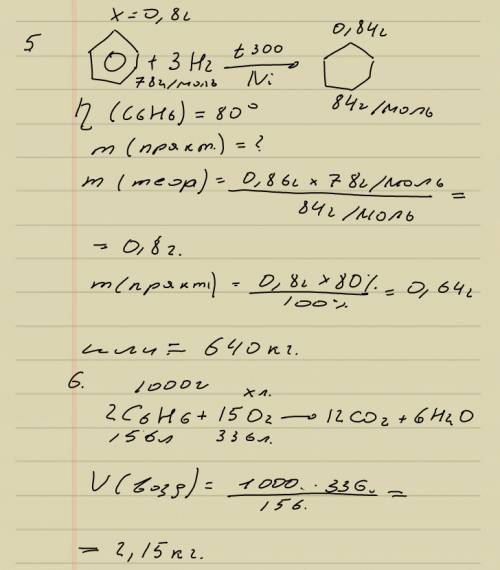 x = 0,8г
5 + 3H2 t 300 0,84г
78г/моль Ni 84г/моль
η (C6H6) = 80°
m (практ.) = ?
m (теор) = 0,86г × 78г/моль =
84г/моль
= 0,8г.
m(практ) = 0,8г × 80% = 0,64г
100%
или = 640кг.
6. 1000г хл.
2C6H6 + 15O2 → 12CO2 + 6H2O
156л 336л.
V(возд) = 1000. · 336. =
156.
= 2,15кг.